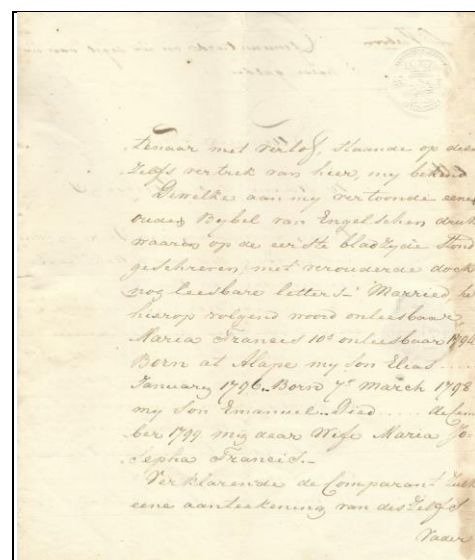 tenaar met verlof, staande op des
zelfs vertrek van hier, my bekend
Dewelke aan my vertoonde eene
ouden Bybel van Engelschen druk
waarin op de eerste bladzyde stond
geschreven, met verouderde doch
nog leesbare letters – Married
hierop volgend woord onleesbaar,
Maria Francis 10d onleesbaar 1794
Born at Alape my Son Elias ....
January 1796 – Born 7th March 1798
my Son Emanuel – Died .... decem
ber 1799 my dear Wife Maria Jo
sepha Francis. –
Verklarende de Comparant
eene aanteekening van deszelfs
Vader